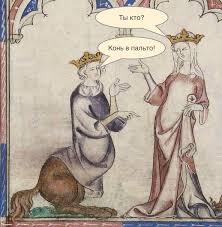 Ты кто?
Конь в пальто!